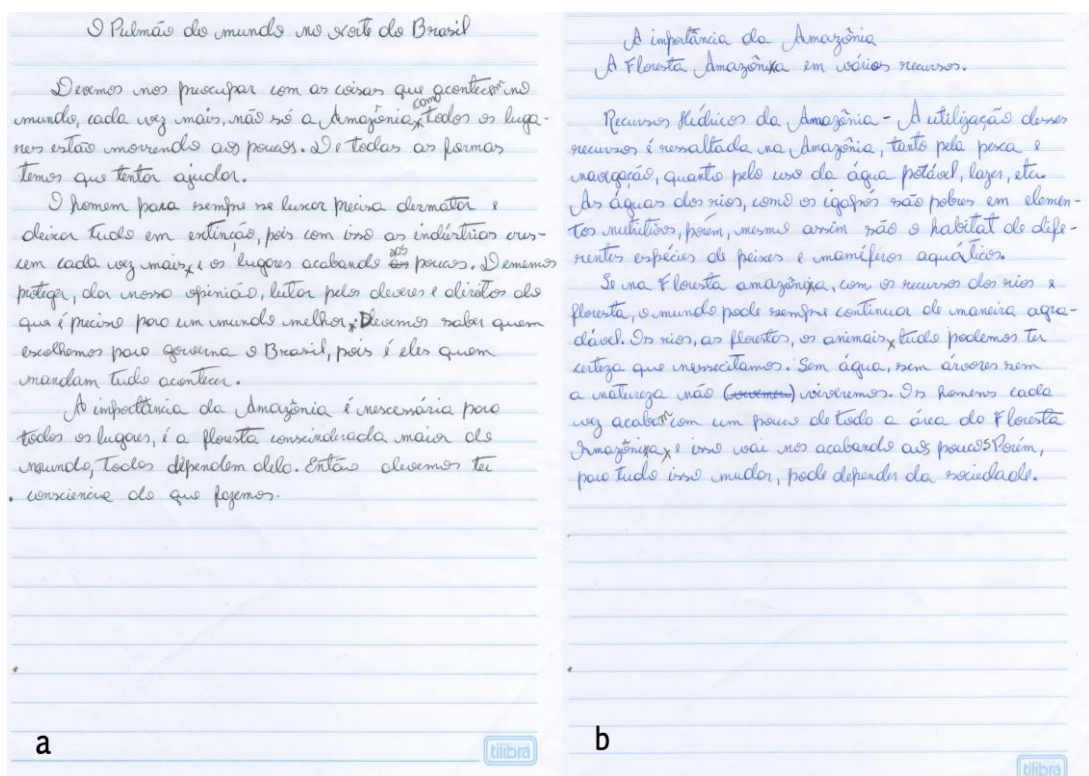 O Pulmão do mundo no Norte do Brasil
Devemos nos preocupar com as coisas que acontecem no
mundo, cada vez mais, não só a Amazônia, como todos os luga-
res estão morrendo aos poucos. De todas as formas
temos que tentar ajudar.
O homem para sempre se luxar precisa dermatar e
deixar tudo em extinção, pois com isso as indústrias cres-
cem cada vez mais, e os lugares acabando aos poucos. Devemos
proteger, dar nossa opinião, lutar pelos deveres e direitos do
que é preciso para um mundo melhor. Devemos saber quem
escolhemos para governa o Brasil, pois é eles quem
mandam tudo acontecer.
A importância da Amazônia é nescessária para
todos os lugares, é a floresta conscinderada maior do
mundo, Todos dependem dela. Então devemos ter
consciência do que fazemos.
a
tilibra
A importância da Amazônia
A Floresta Amazônica em vários recursos.
Recursos Hídricos da Amazônia - A utilização desses
recursos é ressaltada na Amazônia, tanto pela pesca e
navegação, quanto pelo uso da água potável, lazer, etc.
As águas dos rios, como os igapós são pobres em elemen-
tos nutritivos, porém, mesmo assim são o habitat de dife-
rentes espécies de peixes e mamíferos aquáticos.
Se na Floresta amazônica, com os recursos dos rios e
floresta, o mundo pode sempre continuar de maneira agra-
dável. Os rios, as florestas, os animais, tudo podemos ter
certeza que nessecitamos. Sem água, sem árvores sem
a natureza não viveremos. Os homens cada
vez acabam com um pouco de todo a área da Floresta
Amazônica, e isso vai nos acabando aos poucos Porém,
para tudo isso mudar, pode depender da sociedade.
b
tilibra